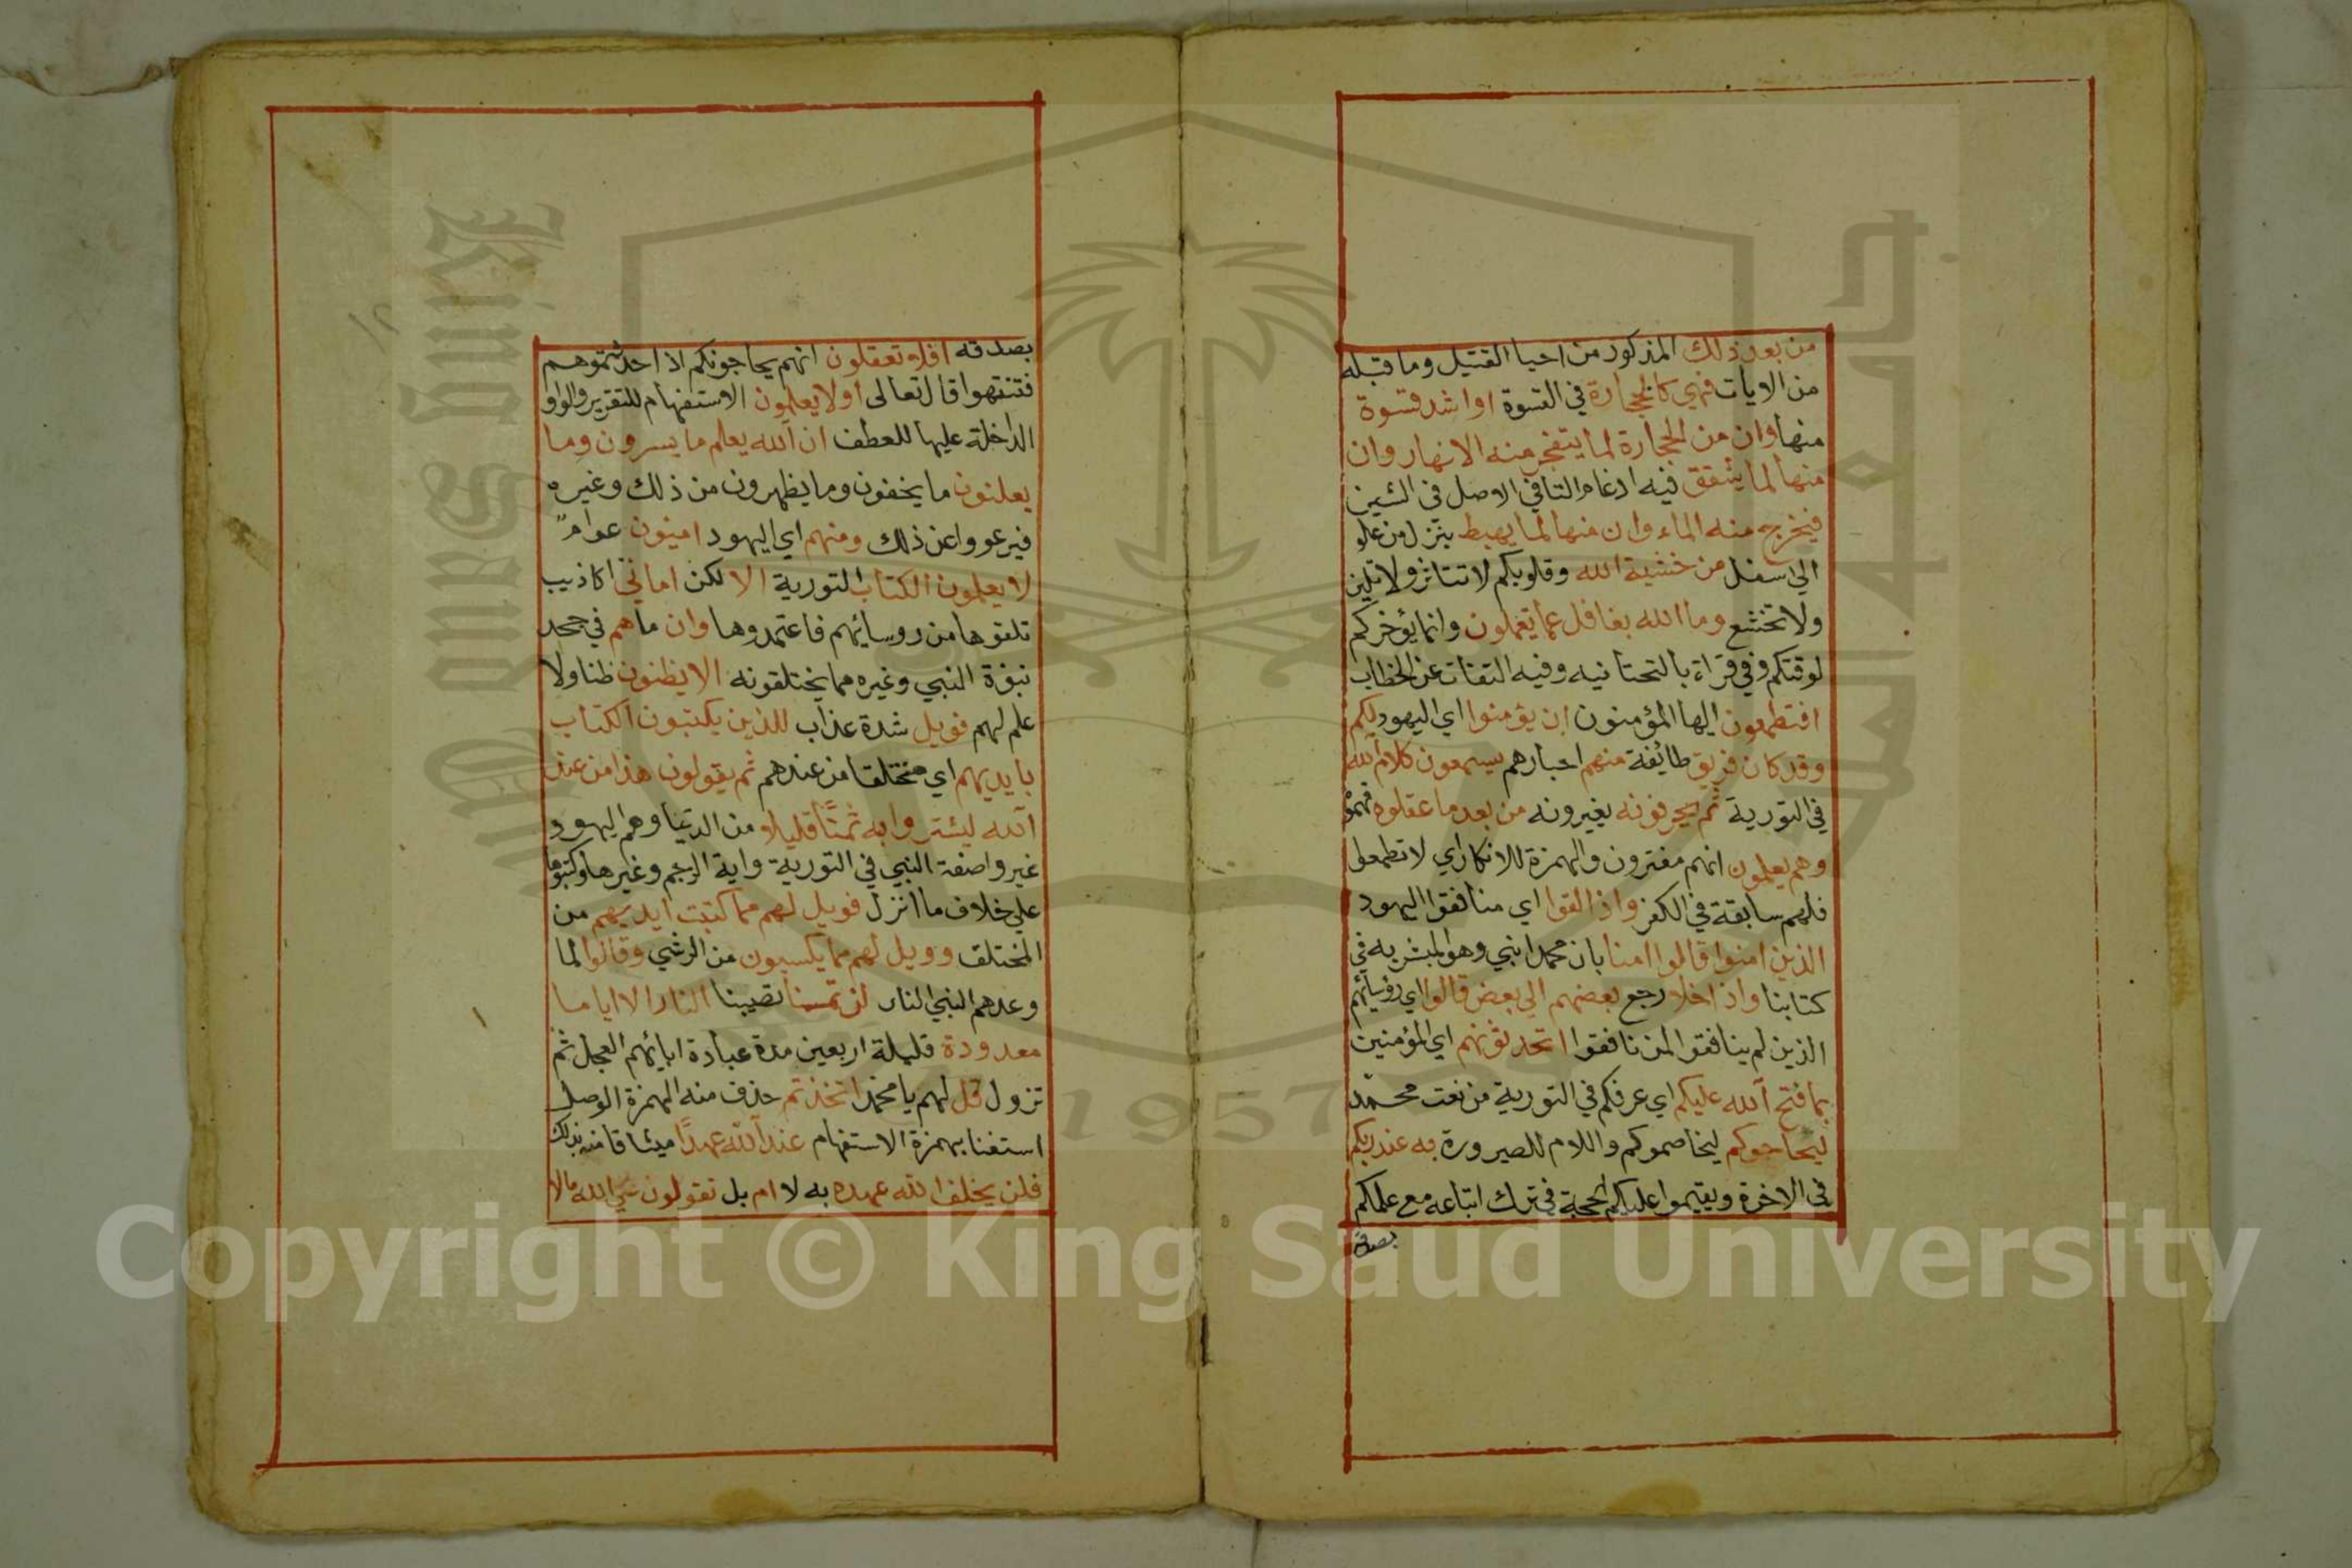 من بعد ذلك المذكور من احيا القتيل وما قبله
من الايات فهي كالحجارة في القسوة او اشد قسوة
منها وان من الحجارة لما يتفجر منه الانهار وان
منها لما يشقق فيه ادغام التا في الاصل في الشين
فيخرج منه الماء وان منها لما يهبط ينزل من علو
الى اسفل من خشية الله وقلوبكم لا تتاثر ولا تلين
ولا تخشع وما الله بغافل عما تعملون وانما يؤخركم
لوقتكم وفي قراءة بالتحتانيه وفيه التفات عن الخطاب
افتطمعون ايها المؤمنون ان يؤمنوا اي اليهود لكم
وقد كان فريق طائفة منهم احبارهم يسمعون كلام الله
في التورية ثم يحرفونه يغيرونه من بعد ما عقلوه فهموه
وهم يعلمون انهم مفترون والهمزة للانكار اي لا تطمعوا
فلهم سابقة في الكفر واذا لقوا اي منافقوا اليهود
الذين امنوا قالوا امنا بان محمدا نبي وهو المبشر به في
كتابنا واذا خلا رجع بعضهم الى بعض قالوا اي رؤسائهم
الذين لم ينافقوا لمن نافقوا اتحدثونهم اي المؤمنين
بما فتح الله عليكم اي عرفكم في التورية من نعت محمد
ليحاجوكم ليخاصموكم واللام للصيرورة به عند ربكم
في الاخرة ويقيموا عليكم الحجة في ترك اتباعه مع علمكم
بصدقه
بصدقه افلا تعقلون انهم يحاجونكم اذا حدثتموهم
فتنتهوا قال تعالى اولا يعلمون الاستفهام للتقرير والواو
الداخلة عليها للعطف ان الله يعلم ما يسرون وما
يعلنون ما يخفون وما يظهرون من ذلك وغيره
فيرعووا عن ذلك ومنهم اي اليهود اميون عوام
لا يعلمون الكتاب التورية الا لكن اماني اكاذيب
تلقوها من روسائهم فاعتمدوها وان ما هم في جحد
نبوة النبي وغيره مما يختلقونه الا يظنون ظنا ولا
علم لهم فويل شدة عذاب للذين يكتبون الكتاب
بايديهم اي مختلقا من عندهم ثم يقولون هذا من عند
الله ليشتروا به ثمنا قليلا من الدنيا وهم اليهود
غيروا صفة النبي في التورية واية الرجم وغيرها وكتبوها
على خلاف ما انزل فويل لهم مما كتبت ايديهم من
المختلق وويل لهم مما يكسبون من الرشي وقالوا لما
وعدهم النبي النار لن تمسنا تصيبنا النار الا اياما
معدودة قليلة اربعين مدة عبادة ابائهم العجل ثم
تزول قل لهم يا محمد اتخذتم حذف منه الهمزة الوصل
استغنا بهمزة الاستفهام عند الله عهدا ميثاقا منه بذلك
فلن يخلف الله عهده به لا ام بل تقولون على الله ما لا
١٢
جامعة الملك
King Saud
1957
Copyright © King Saud University